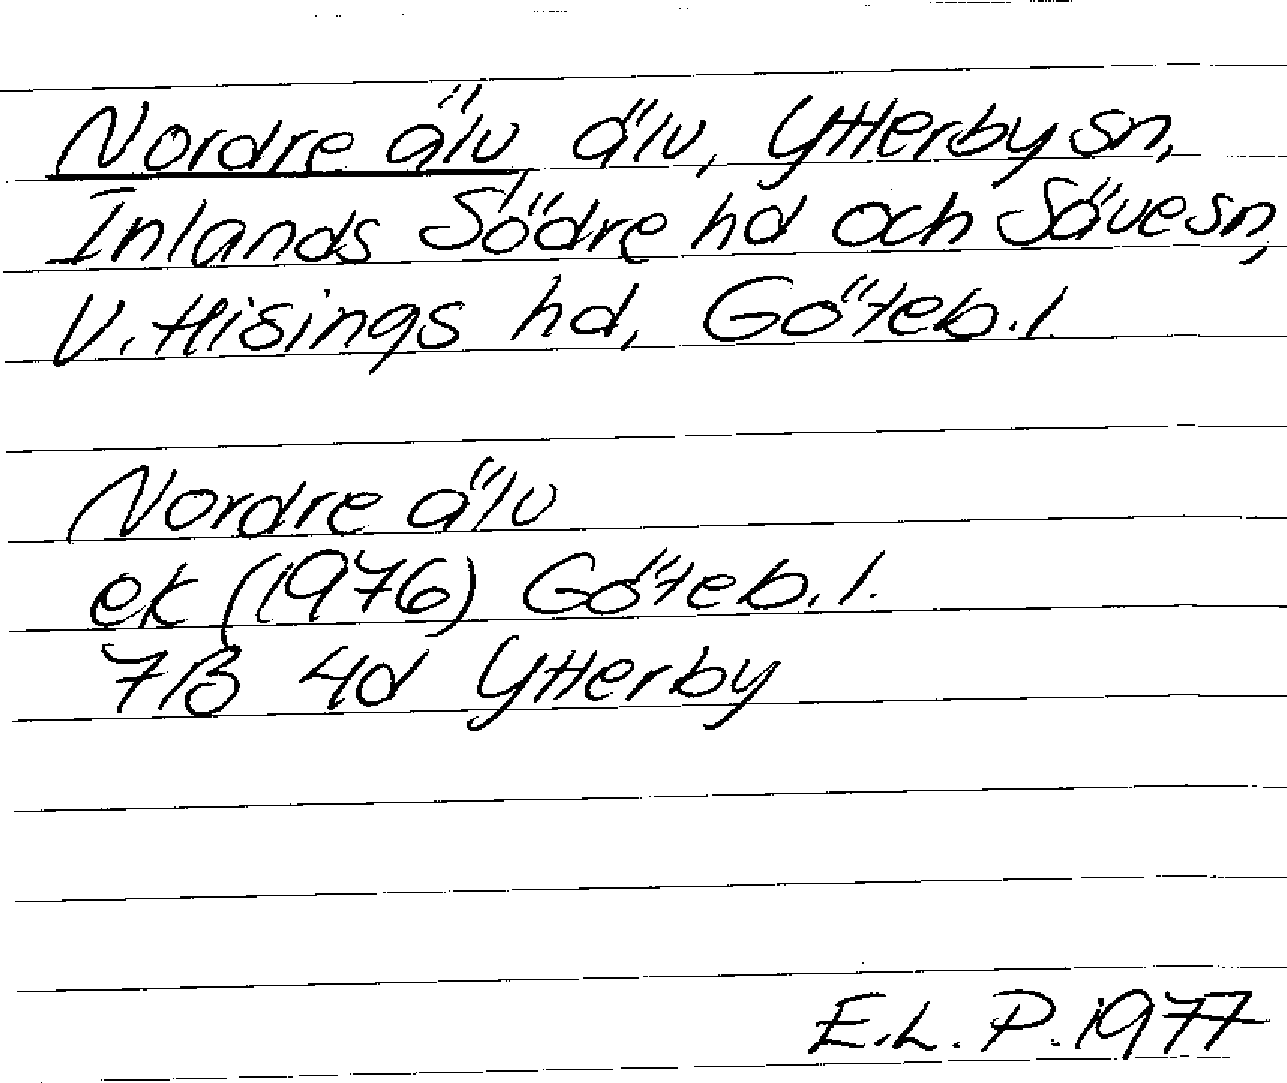 Nordre älv, älv, Ytterby sn,
Inlands Södre hd och Säve sn,
V. Hisings hd, Göteb. l.
Nordre älv
ek (1976) Göteb. l.
7B 4d Ytterby
E.L.P. 1977